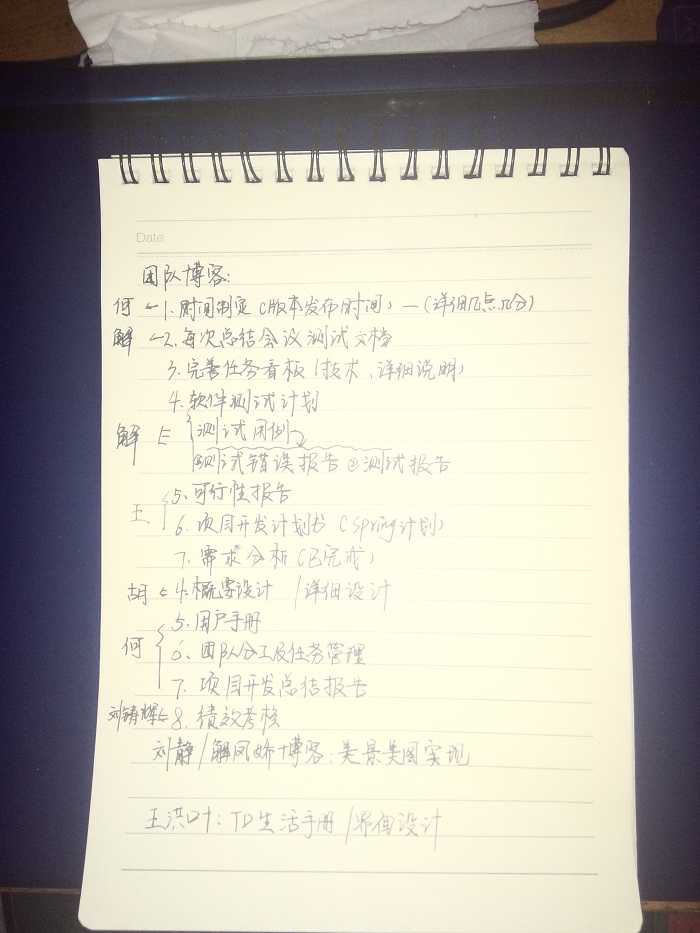 Date
团队博客:
何 1. 时间制定(版本发布时间)—(详细几点几分)
解 2. 每次总结会议测试文档
3. 完善任务看板(技术、详细说明)
4. 软件测试计划
解 测试用例
测试错误报告 ②测试报告
5. 可行性报告
王 6. 项目开发计划书(spring计划)
7. 需求分析(已完成)
胡 4. 概要设计 /详细设计
5. 用户手册
何 6. 团队分工及任务管理
7. 项目开发总结报告
刘铸辉 8. 绩效考核
刘静/解凤娇博客:美景美图实现
王洪叶:TD生活手册/界面设计